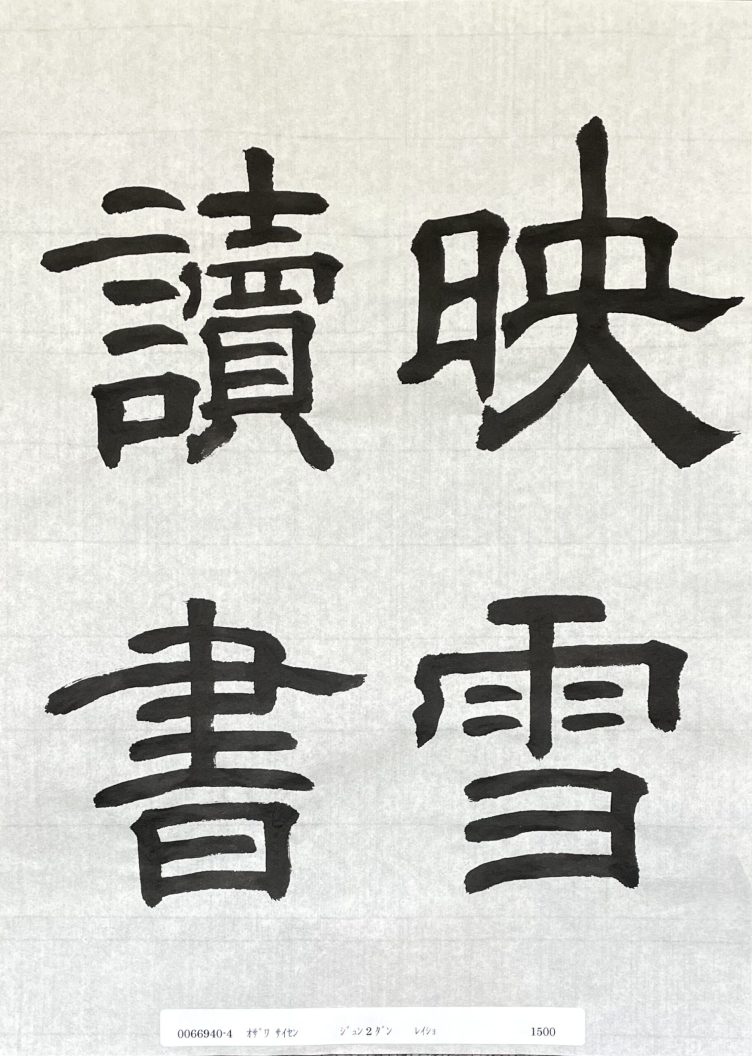 映雪
讀書
0066940-4 ｵｻﾞﾜ ｻｲｾﾝ ｼﾞｭﾝ2ﾀﾞﾝ ﾚｲｼｮ 1500